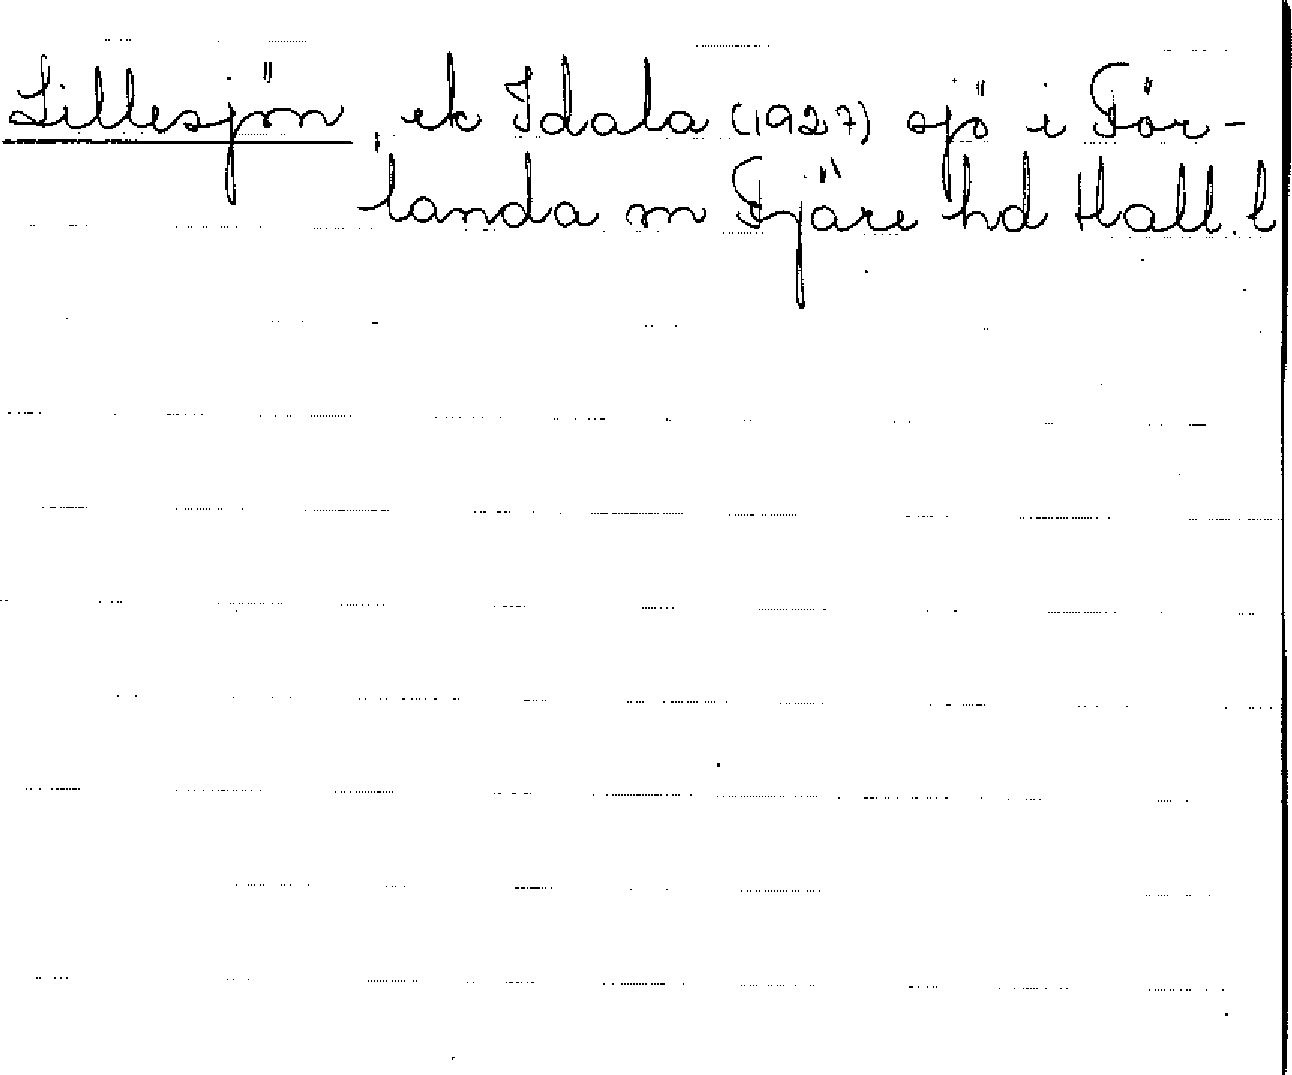 Lillesjön, ek Idala (1927) sjö i För-
landa sn Fjäre hd Hall. l